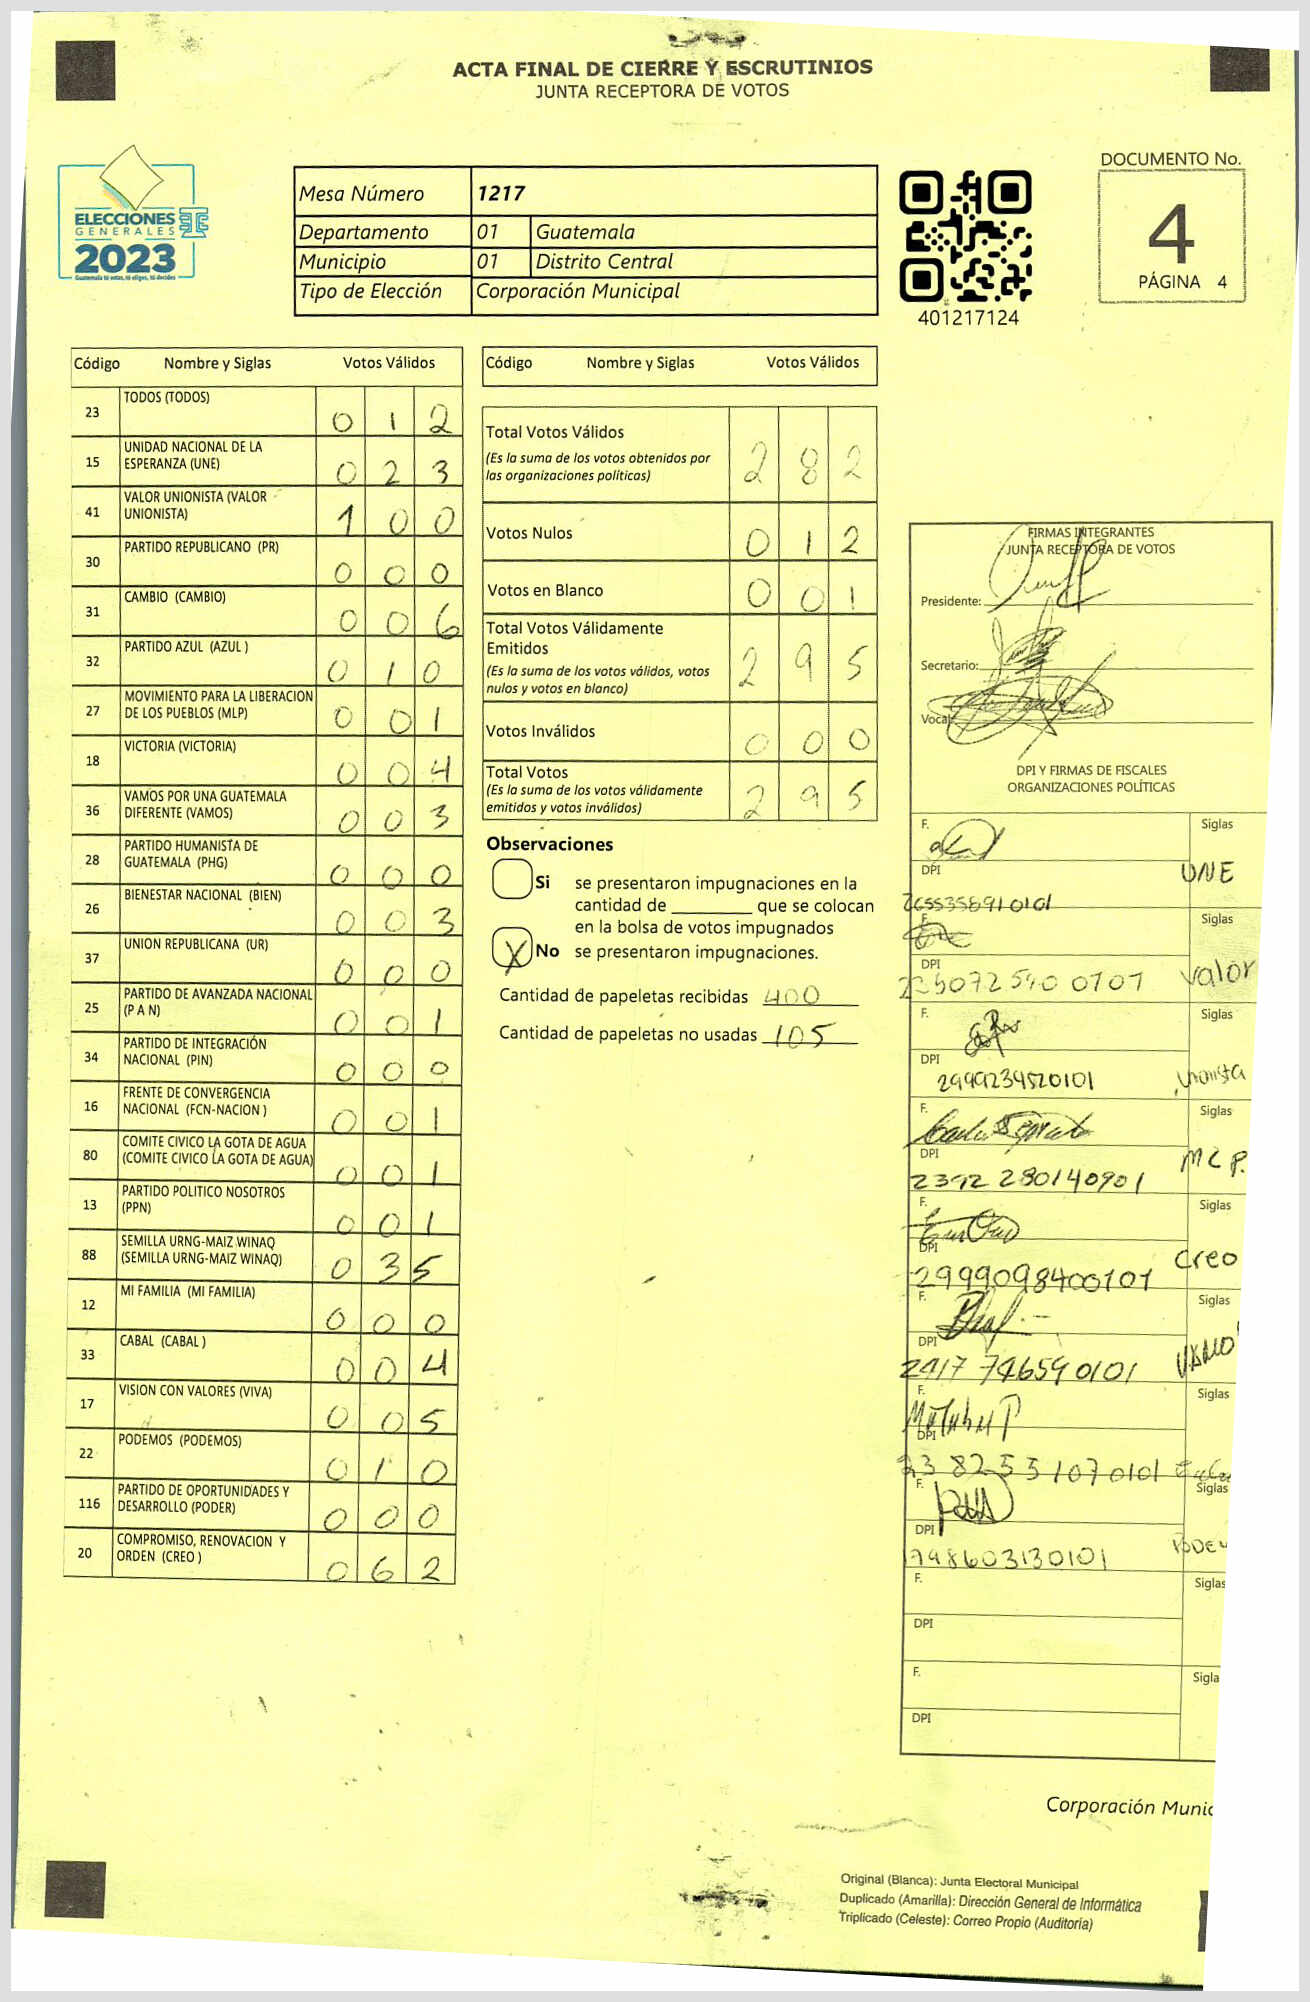 ACTA FINAL DE CIERRE Y ESCRUTINIOS
JUNTA RECEPTORA DE VOTOS
ELECCIONES
GENERALES
2023
Guatemala tú votas, tú eliges, tú decides
Mesa Número 1217
Departamento 01 Guatemala
Municipio 01 Distrito Central
Tipo de Elección Corporación Municipal
401217124
DOCUMENTO No.
4
PÁGINA 4
Código Nombre y Siglas Votos Válidos
23 TODOS (TODOS) 0 1 2
15 UNIDAD NACIONAL DE LA
ESPERANZA (UNE) 0 2 3
41 VALOR UNIONISTA (VALOR
UNIONISTA) 1 0 0
30 PARTIDO REPUBLICANO (PR) 0 0 0
31 CAMBIO (CAMBIO) 0 0 6
32 PARTIDO AZUL (AZUL ) 0 1 0
27 MOVIMIENTO PARA LA LIBERACION
DE LOS PUEBLOS (MLP) 0 0 1
18 VICTORIA (VICTORIA) 0 0 4
36 VAMOS POR UNA GUATEMALA
DIFERENTE (VAMOS) 0 0 3
28 PARTIDO HUMANISTA DE
GUATEMALA (PHG) 0 0 0
26 BIENESTAR NACIONAL (BIEN) 0 0 3
37 UNION REPUBLICANA (UR) 0 0 0
25 PARTIDO DE AVANZADA NACIONAL
(P A N) 0 0 1
34 PARTIDO DE INTEGRACIÓN
NACIONAL (PIN) 0 0 0
16 FRENTE DE CONVERGENCIA
NACIONAL (FCN-NACION ) 0 0 1
80 COMITE CIVICO LA GOTA DE AGUA
(COMITE CIVICO LA GOTA DE AGUA) 0 0 1
13 PARTIDO POLITICO NOSOTROS
(PPN) 0 0 1
88 SEMILLA URNG-MAIZ WINAQ
(SEMILLA URNG-MAIZ WINAQ) 0 3 5
12 MI FAMILIA (MI FAMILIA) 0 0 0
33 CABAL (CABAL ) 0 0 4
17 VISION CON VALORES (VIVA) 0 0 5
22 PODEMOS (PODEMOS) 0 1 0
116 PARTIDO DE OPORTUNIDADES Y
DESARROLLO (PODER) 0 0 0
20 COMPROMISO, RENOVACION Y
ORDEN (CREO ) 0 6 2
Código Nombre y Siglas Votos Válidos
Total Votos Válidos 2 8 2
(Es la suma de los votos obtenidos por
las organizaciones políticas)
Votos Nulos 0 1 2
Votos en Blanco 0 0 1
Total Votos Válidamente
Emitidos 2 9 5
(Es la suma de los votos válidos, votos
nulos y votos en blanco)
Votos Inválidos 0 0 0
Total Votos 2 9 5
(Es la suma de los votos válidamente
emitidos y votos inválidos)
Observaciones
Si se presentaron impugnaciones en la
cantidad de ________ que se colocan
en la bolsa de votos impugnados
X No se presentaron impugnaciones.
Cantidad de papeletas recibidas 400
Cantidad de papeletas no usadas 105
FIRMAS INTEGRANTES
JUNTA RECEPTORA DE VOTOS
Presidente:
Secretario:
Vocal:
DPI Y FIRMAS DE FISCALES
ORGANIZACIONES POLÍTICAS
F. Siglas
DPI UNE
2655358910101
F. Siglas
DPI Valor
F. Siglas
DPI Unionista
2999234520101
F. Siglas
DPI
2392 280140901
F. Siglas
DPI Creo
2999098400101
F. Siglas
DPI
2417 746590101
F. Siglas
DPI
23 82551070101
F. Siglas
DPI
1798603130101
F. Siglas
DPI
F. Sigla
DPI
Corporación Munic
Original (Blanca): Junta Electoral Municipal
Duplicado (Amarilla): Dirección General de Informática
Triplicado (Celeste): Correo Propio (Auditoria)